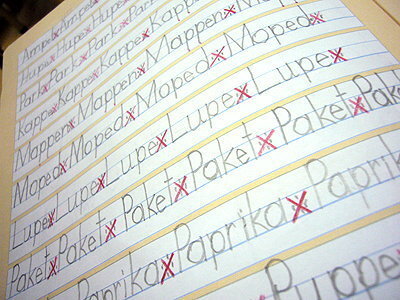 Ampel x Ampel
Hupe x Hupe x Hupe
Park x Park x Park x Park
Kappe x Kappe x Kappe x Kappe
Mappen x Mappen x Mappen
Moped x Moped x Moped x Moped x
Lupe x Lupe x Lupe x Lupe x Lupe x
Paket x Paket x Paket x Paket x Paket x Pak
Paprika x Paprika x Paprik
Puppe